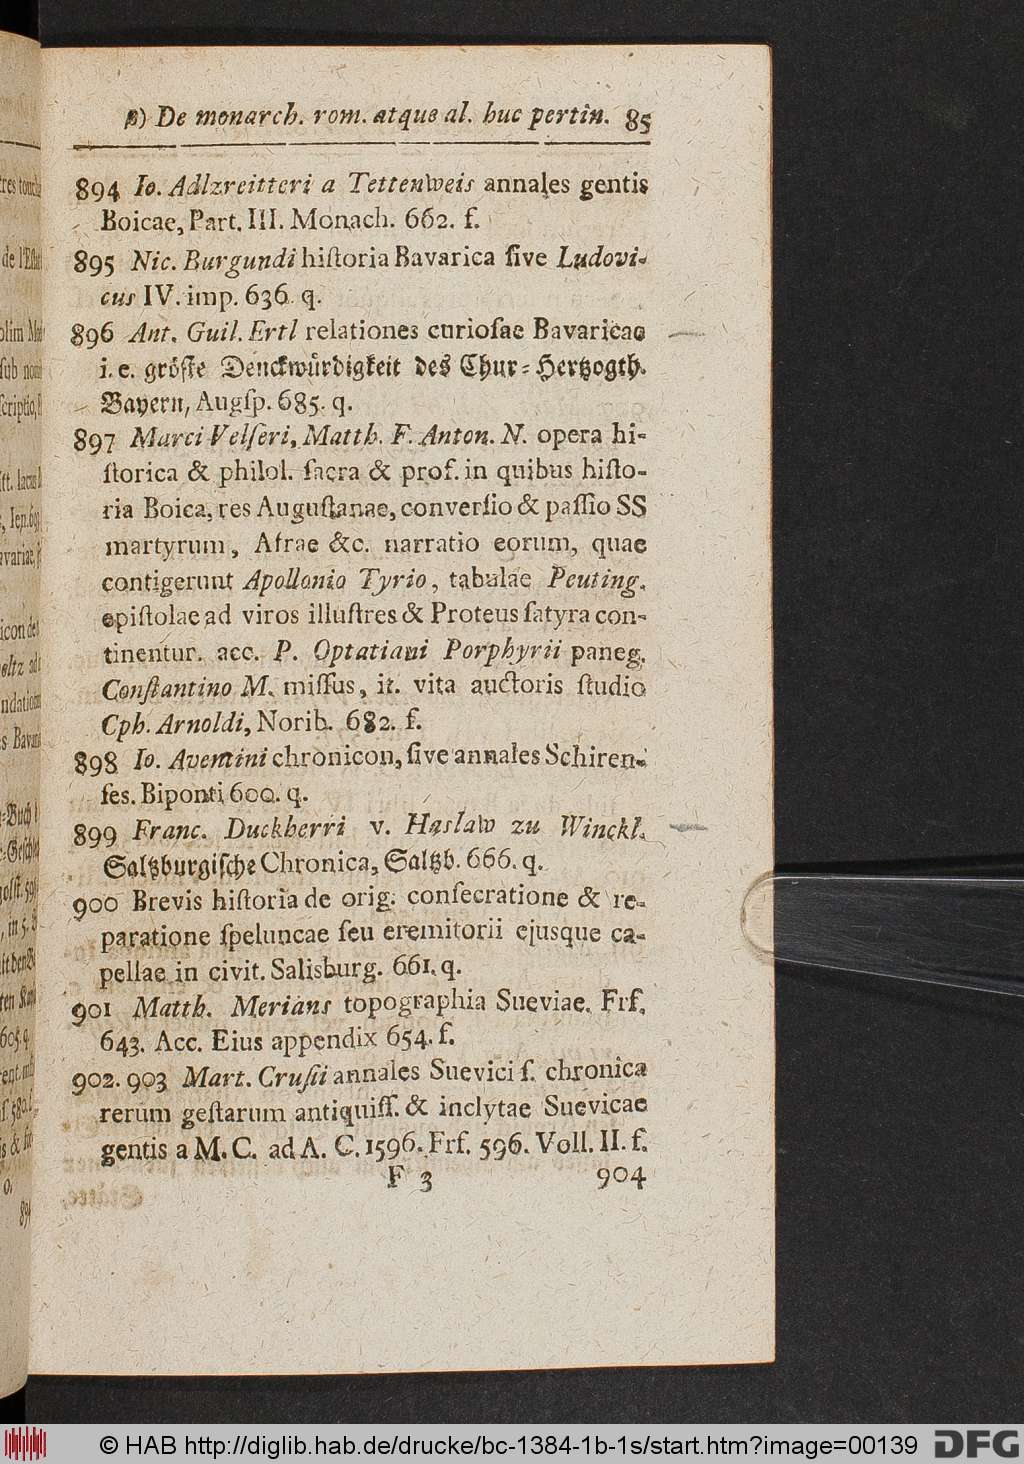 β) De monarch. rom. atque al. huc pertin. 85
894 Io. Adlzreitteri a Tettenweis annales gentis
Boicae, Part. III. Monach. 662. f.
895 Nic. Burgundi hiſtoria Bavarica ſive Ludovi-
cus IV. imp. 636. q.
896 Ant. Guil. Ertl relationes curioſae Bavaricae
i. e. gröſte Denckwürdigkeit des Chur-Hertzogth.
Bayern, Augſp. 685. q.
897 Marci Velſeri, Matth. F. Anton. N. opera hi-
ſtorica & philol. ſacra & prof. in quibus hiſto-
ria Boica, res Auguſtanae, converſio & paſſio SS
martyrum, Afrae &c. narratio eorum, quae
contigerunt Apollonio Tyrio, tabulae Peuting.
epiſtolae ad viros illuſtres & Proteus ſatyra con-
tinentur. acc. P. Optatiani Porphyrii paneg.
Conſtantino M. miſſus, it. vita auctoris ſtudio
Cph. Arnoldi, Norib. 682. f.
898 Io. Aventini chronicon, ſive annales Schiren-
ſes. Biponti 600. q.
899 Franc. Duckherri v. Haslaw zu Winckl.
Saltzburgiſche Chronica, Saltzb. 666. q.
900 Brevis hiſtoria de orig. conſecratione & re-
paratione ſpeluncae ſeu eremitorii ejusque ca-
pellae in civit. Salisburg. 661. q.
901 Matth. Merians topographia Sueviae. Frf.
643. Acc. Eius appendix 654. f.
902. 903 Mart. Cruſii annales Suevici ſ. chronica
rerum geſtarum antiquiſſ. & inclytae Suevicae
gentis a M. C. ad A. C. 1596. Frf. 596. Voll. II. f.
F 3 904
© HAB http://diglib.hab.de/drucke/bc-1384-1b-1s/start.htm?image=00139
DFG